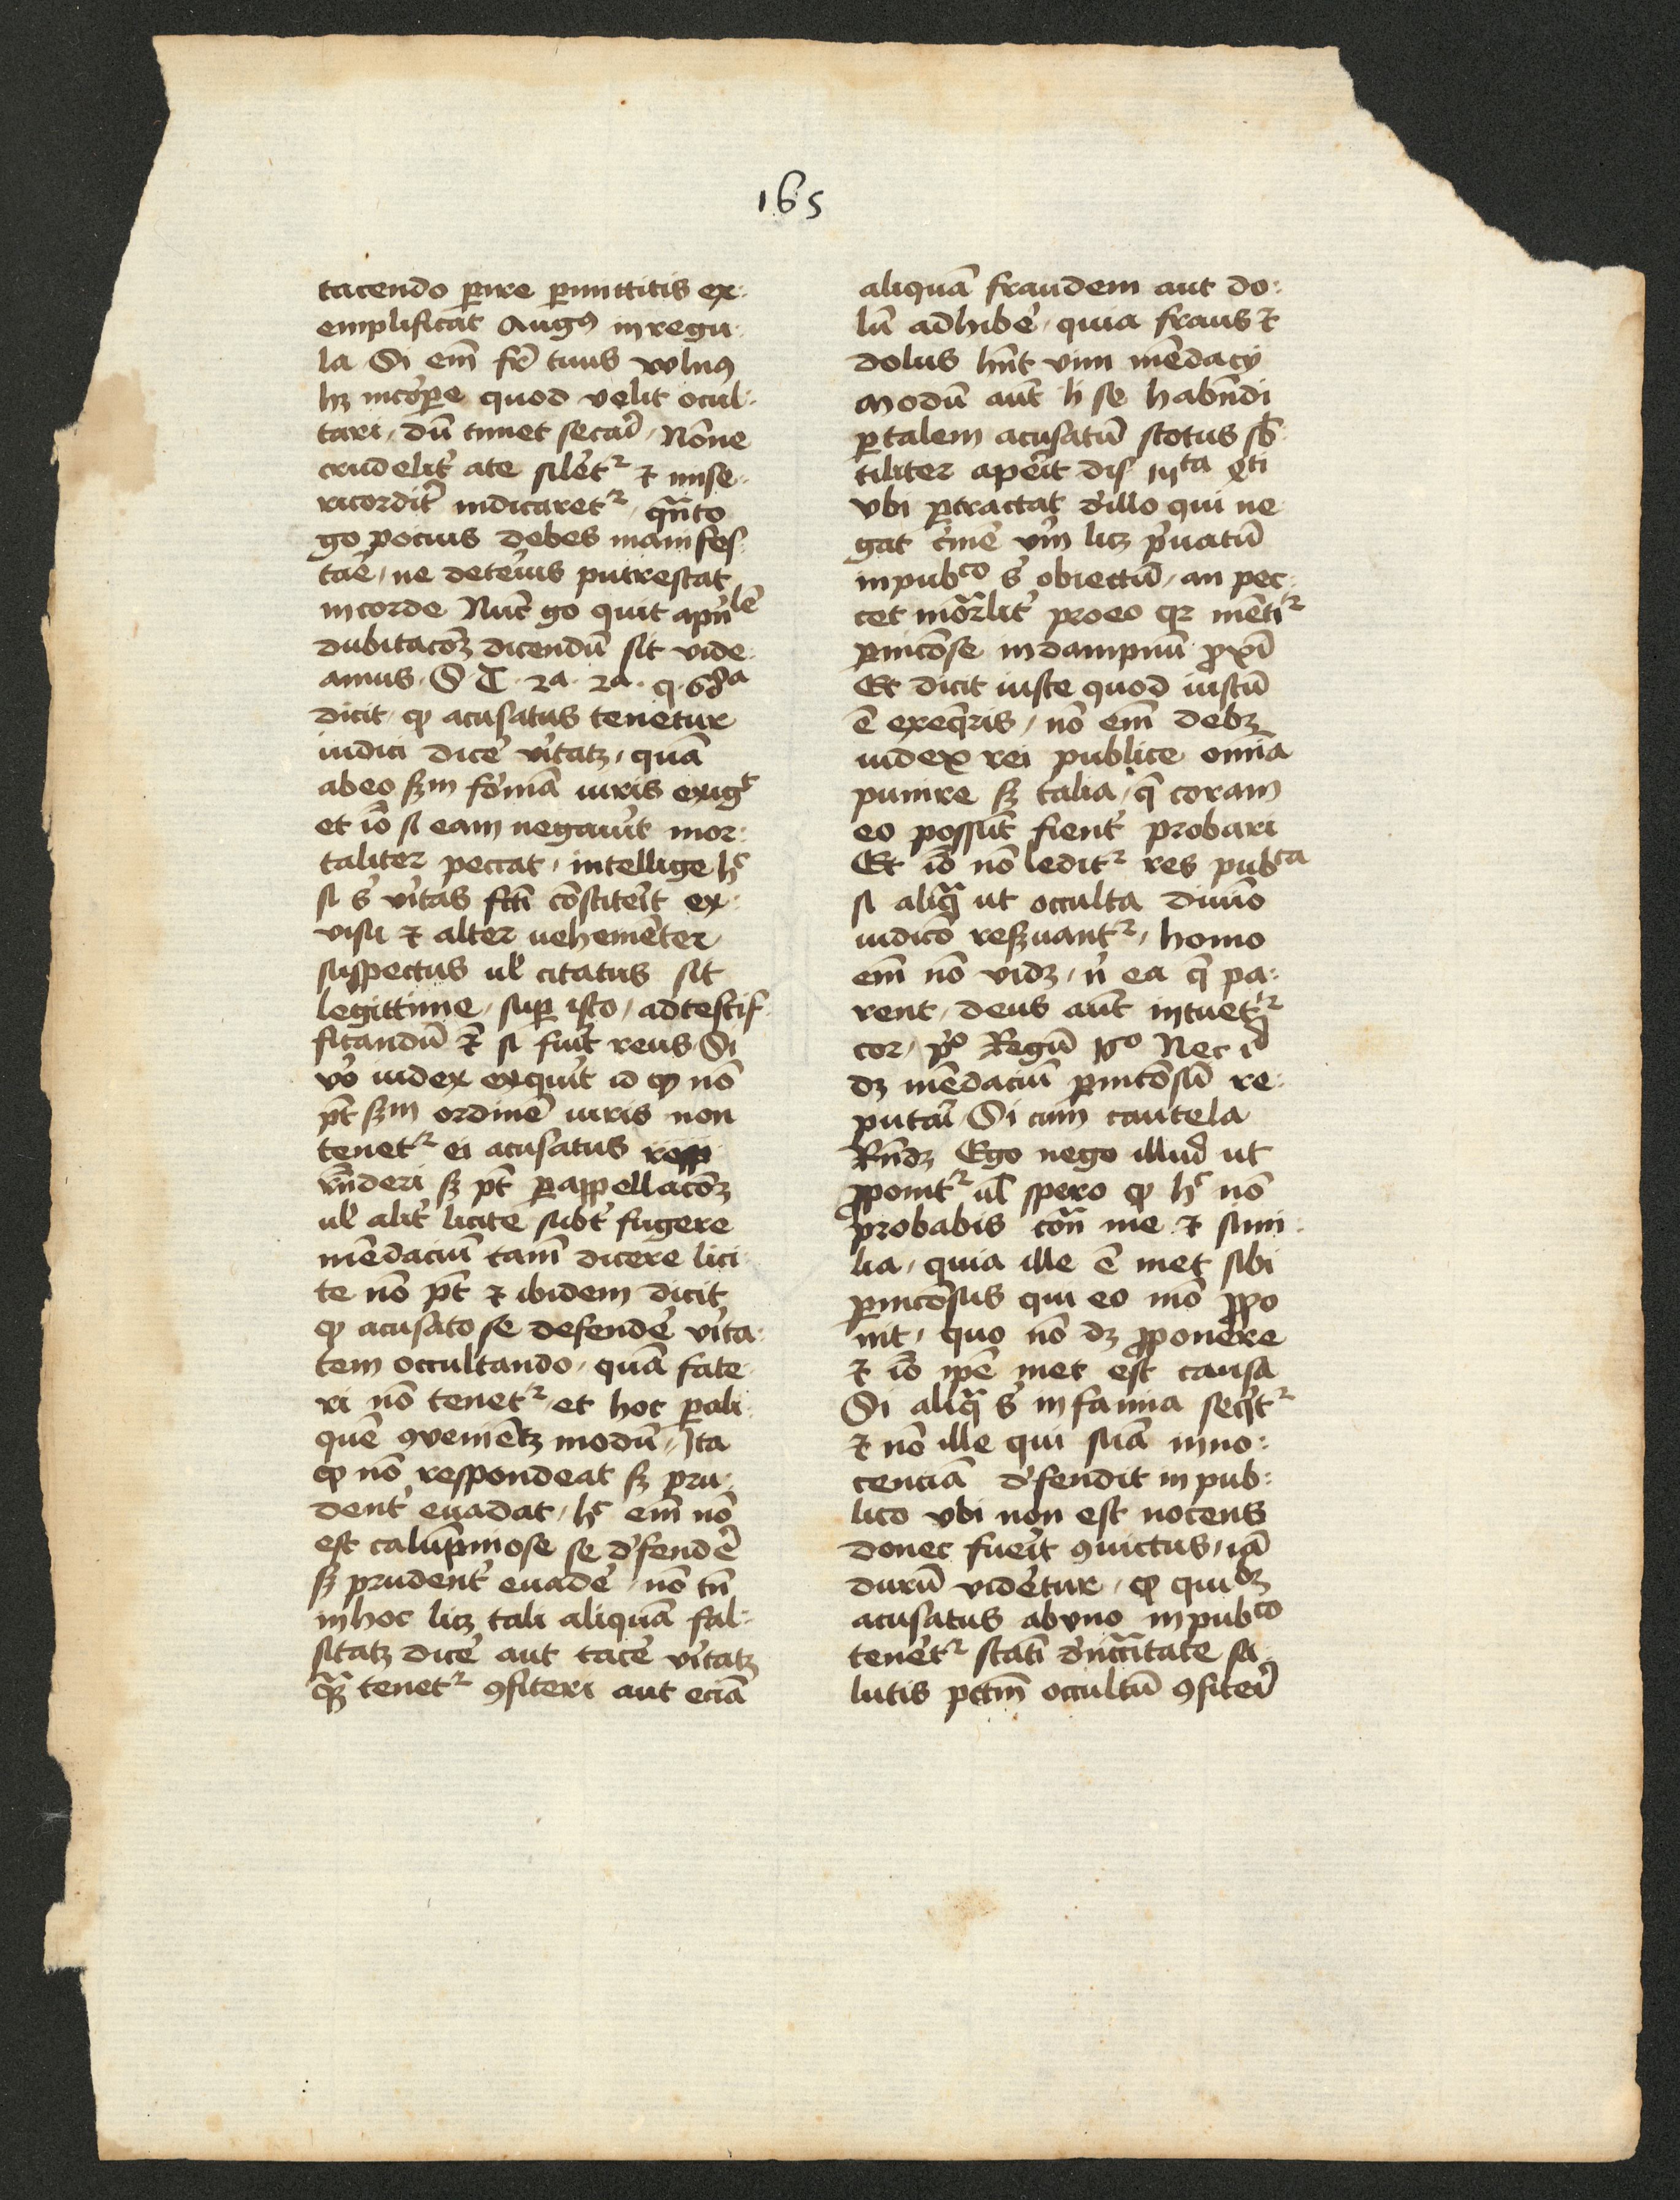 165
tacendo ꝑire ꝑmittitis ex:
emplificat Augꝰ in regu:
la Si em̄ fr̄ tuus vvlnꝰ
hꝫ incorꝑe quod velit ocul:
tari / dū timet secari / Nōne
crudelit̕ a te siletᷣ̕ ⁊ mise:
ricordit̕ indicaretᷣ / qn̄to
go pocius debes manifes:
tae̕ / ne dete̕ius putrescat
in corde Nūc go quit ap̄n̄lē
dubitacōꝫ dicendū sit vide:
amus . S . T . 2a . 2a . q . 68a
dicit / ꝙ acusatus tenetur
iudici dice̕ v̕itatꝫ / quā
ab eo ẜm fo̕mā iuris exigᵗ
et iō si eam negau̕it mor:
taliter peccat / intellige hᶜ
si s̕ v̕itas fc̄ti cōstite̕it ex
visu ⁊ alter uehemēter
suspectus ul̕ citatus sit
legittime / suꝑ isto / ad testif
ficandū ⁊ si fuit̕ reus / Si
vo̕ iudex exquir̕it id ꝙ nō
pt̄ ẜm ordinē iuris non
tenetᷣ ei acusatus resp
rn̄deri sꝫ pt̄ ꝑ appellacōꝫ
ul̕ alit̕ licite subt̕ fugere
mēdaciū tam̄ dicere lici
te nō pt̄ ⁊ ibidem dicit
ꝙ acusato se defende̕ v̕ita:
tem occultando / quā fate
ri nō tenetᷣ / et hoc ꝑ ali
quē ꝯveniētꝫ modū / Ita
ꝙ nō respondeat sꝫ pru:
dent̕ euadat / hᶜ em̄ nō
est calūpniose se d̕fende̕
sꝫ prudent̕ euade̕ / nō tn̄
in hoc licꝫ tali aliquā fal:
sitatꝫ dice̕ aut tace̕ v̕itatꝫ
quā tenetᷣ ꝯfiteri aut eciā
aliquā fraudem aut do:
lū adhibe̕ / quia fraus ⁊
dolus hn̄t vim mēdacij
Modū aūt h̕ se habn̄di
ꝑ talem acusatū scotus sb̄:
tiliter ape̕it dis iiijta q̄ti
vbi ꝑtractat d̕ illo qui ne
gat c̕imē v̕m licꝫ p̕uatū
in pubco s̕ obiectū / an pec:
cet mor̄lit̕ pro eo qꝛ mētiᷣ
ꝑnicōse in dampnū ꝓxi̅
Et dicit iuste quod iustū
ē exeq̄ris / nō em̄ debꝫ
iudex rei publice omīa
punire sꝫ talia / q̄ coram
eo possūt fient̕ probari
Et iō nō leditᷣ res pubca
si aliq̄ ut occulta diuīo
iudicō resꝫuantᷣ / homo
em̄ nō vidꝫ / n̕ ea q̄ pa:
rent / deus aūt intuetᷣ
cor / p̕o Regū 16o Nec id
dꝫ mēdaciū ꝑnicōsū re:
putari̕ / Si cum cautela
Rn̄dꝫ Ego nego illud ut
ꝓponitᷣ ul̕ spero ꝙ hᶜ nō
probabis cōn̄ me ⁊ simi:
lia / quia ille ē met sibi
ꝑnicōsus qui eo mō ꝓpo
nit / quo nō dꝫ ꝓponere
⁊ iō ip̄e met est causa
Si aliq̄ s̕ infamia seq̄tᷣ
⁊ nō ille qui suā inno:
cenciā d̕fendit in pub:
lico vbi non est nocens
donec fue̕it ꝯuictus / iā
durū vide̕tur / ꝙ quidꝫ
acusatus ab vno in pubco
tene̕tᷣ statī d̕ nc̄citate sa
lutis pc̄tm̄ occultū ꝯfiteri̕